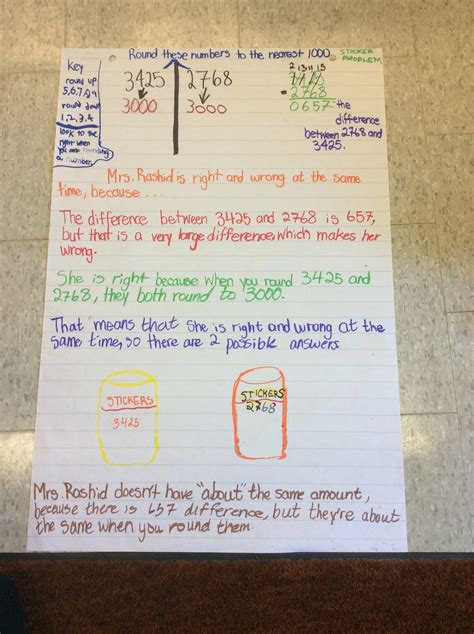 Round these numbers to the nearest 1000.
STICKER
PROBLEM
Key
round up
5,6,7,8,9
round down
1,2,3,4
look to the
right when
you are
a number.
3425
3000
2768
3000
2 13 11 15
- 2768
0657
the
difference
between 2768 and
3425.
Mrs. Rashid is right and wrong at the same
time, because ...
The difference between 3425 and 2768 is 657,
but that is a very large difference, which makes her
wrong.
She is right because when you round 3425 and
2768, they both round to 3000.
That means that she is right and wrong at the
same time, so there are 2 possible answers
STICKERS
3425
STICKERS
2768
Mrs. Rashid doesn't have "about" the same amount,
because there is 657 difference, but they're about
the same when you round them.